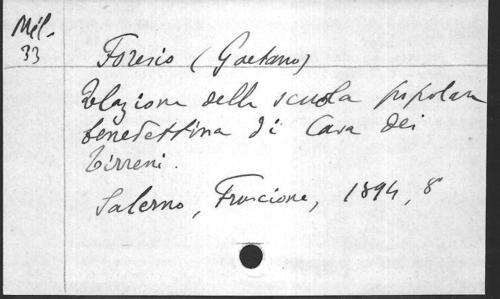 Mél.
33
Foresio (Gaetano)
Relazione della scuola popolare
benedettina di Cava dei
Tirreni.
Salerno, Fruscione, 1894, 8